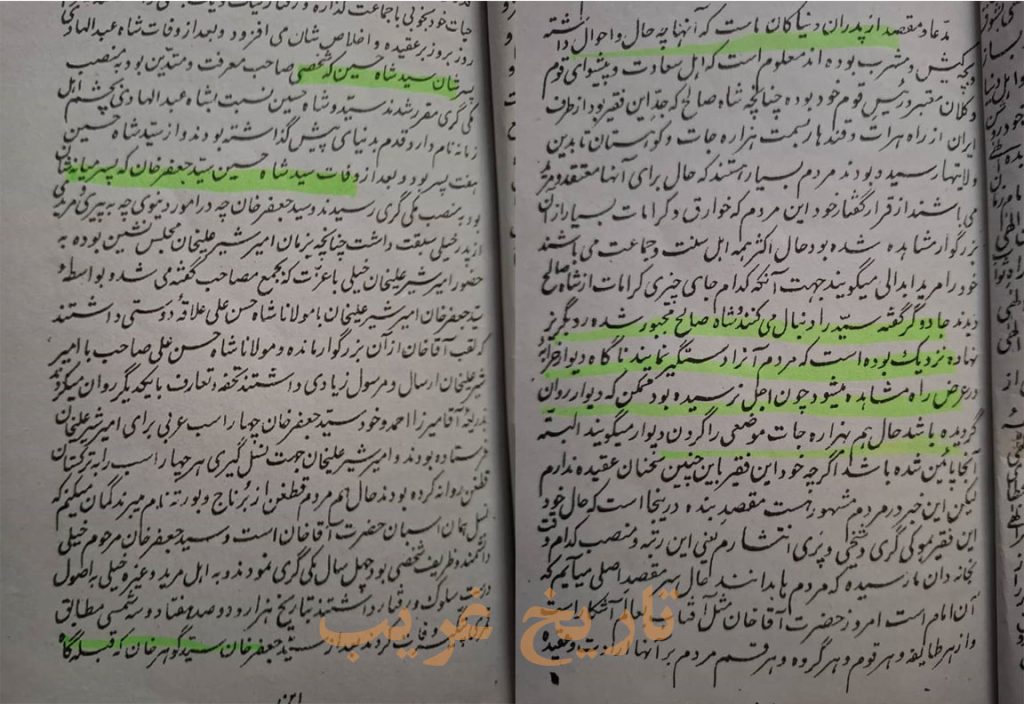 مدعا و مقصد از پدران دنیا کان ما است که آنها به چه حال و احوال داشته
و بچه کیش و مشرب بوده اند معلوم است که اهل سعادت و پیشوای قوم
و کلان معتبر و رئیس قوم خود بوده چنانچه شاه صالح که جد این فقیر بود از طرف
ایران از راه هرات و قندهار بسمت هزاره جات و کوهستان تا بدین
ولا تها رسیده بودند مردم بسیار هستند که حال برای آنها معتقد و مرید
می باشند از قرار گفتار خود این مردم که خوارق و کرامات بسیار از آن
بزرگوار مشاهده شده بود حال اکثر همه اهل سنت و جماعت می باشند
خود را مرید ابدالی میگویند جهت آنکه کدام جای چیزی کرامات از شاه صالح
دیدند جادوگر گفته سید را دنبال می کنند شاه صالح مجبور شده رد بگریز
نهاده نزدیک بوده است که مردم آنرا دستگیر نمایند ناگاه دیوار
در عرض راه مشاهده میشود چون اجل نرسیده بود ممکن که دیوار روان
گردیده باشد حال هم بهزاره جات موضعی را گردن دیوار میگویند البته
آنجا پائین شده باشد اگرچه خود این فقیر باین چنین سخنان عقیده ندارم
لیکن این خبر در مردم مشهور است مقصد بنده در ینجا است که حال خود
این فقیر بموکی گری و شخی و پیری انتشار م یعنی این رتبه و منصب کدام وقت
بخانه دان ما رسیده که مردم ها بدانند حال بسر مقصد اصلی میآیم که
آن امام است امروز حضرت آقاخان مثل آفتاب بعالم آشکار است
و از هر طایفه و هر قوم و هر گروه و هر قسم مردم بر آنها ارادت و عقیده
جات خود بخوبی با جماعت گذاره و رفتار
روز بروز بر عقیده و اخلاص شان می افزود و بعد از وفات شاه عبدالهادی
پسر شان سید شاه حسین که شخصی صاحب معرفت و متدین بود بمنصب
مکی گری مقرر شدند سید و شاه حسین نسبت بشاه عبدالهادی بچشم اهل
زمانه نام دار و قدم بدنیای پیش گذاشته بودند و از سید شاه حسین
هفت پسر بود و بعد از وفات سید شاه حسین سید جعفرخان که پسر میانه شان
بود به منصب مکی گری رسیدند و سید جعفرخان چه در امور دنیوی چه به پیری مریدی
از پدر خیلی سبقت داشت چنانچه بزمان امیر شیر علیخان مجلس نشین بوده به
حضور امیر شیر علیخان خیلی با عزت که بمجمع مصاحب گفته می شد و بواسطه
سید جعفرخان امیر شیر علیخان با مولانا شاه حسن علی علاقه دوستی داشتند
که لقب آقاخان از آن بزرگوار مانده و مولانا شاه حسن علی صاحب با امیر
شیر علیخان ارسال و مرسول زیادی داشتند تحفه و تعارف با یکدیگر روان میکردند
بذریعه آقا میرزا احمد و خود سید جعفرخان چهار اسب عربی برای امیر شیر علیخان
فرستاده بودند و امیر شیر علیخان جهت نسل گیری هر چهار اسب را به ترکستان
قطغن روانه کرده بودند حال هم مردم قطغن از برناج و بورته نام میبرند گمان میکنم که
نسل همان اسبان حضرت آقاخان است و سید جعفرخان مرحوم خیلی
دانشمند و ظریف شخصی بود چهل سال مکی گری نمودند و به اهل مرید و غیره خیلی به اصول
درست سلوک و رفتار داشتند بتاریخ هزار و دو صد هفتاد و سه شمسی مطابق
وفات کردند بعد از سید جعفرخان سید گوهرخان که قبله گاه
تاریخ غریب